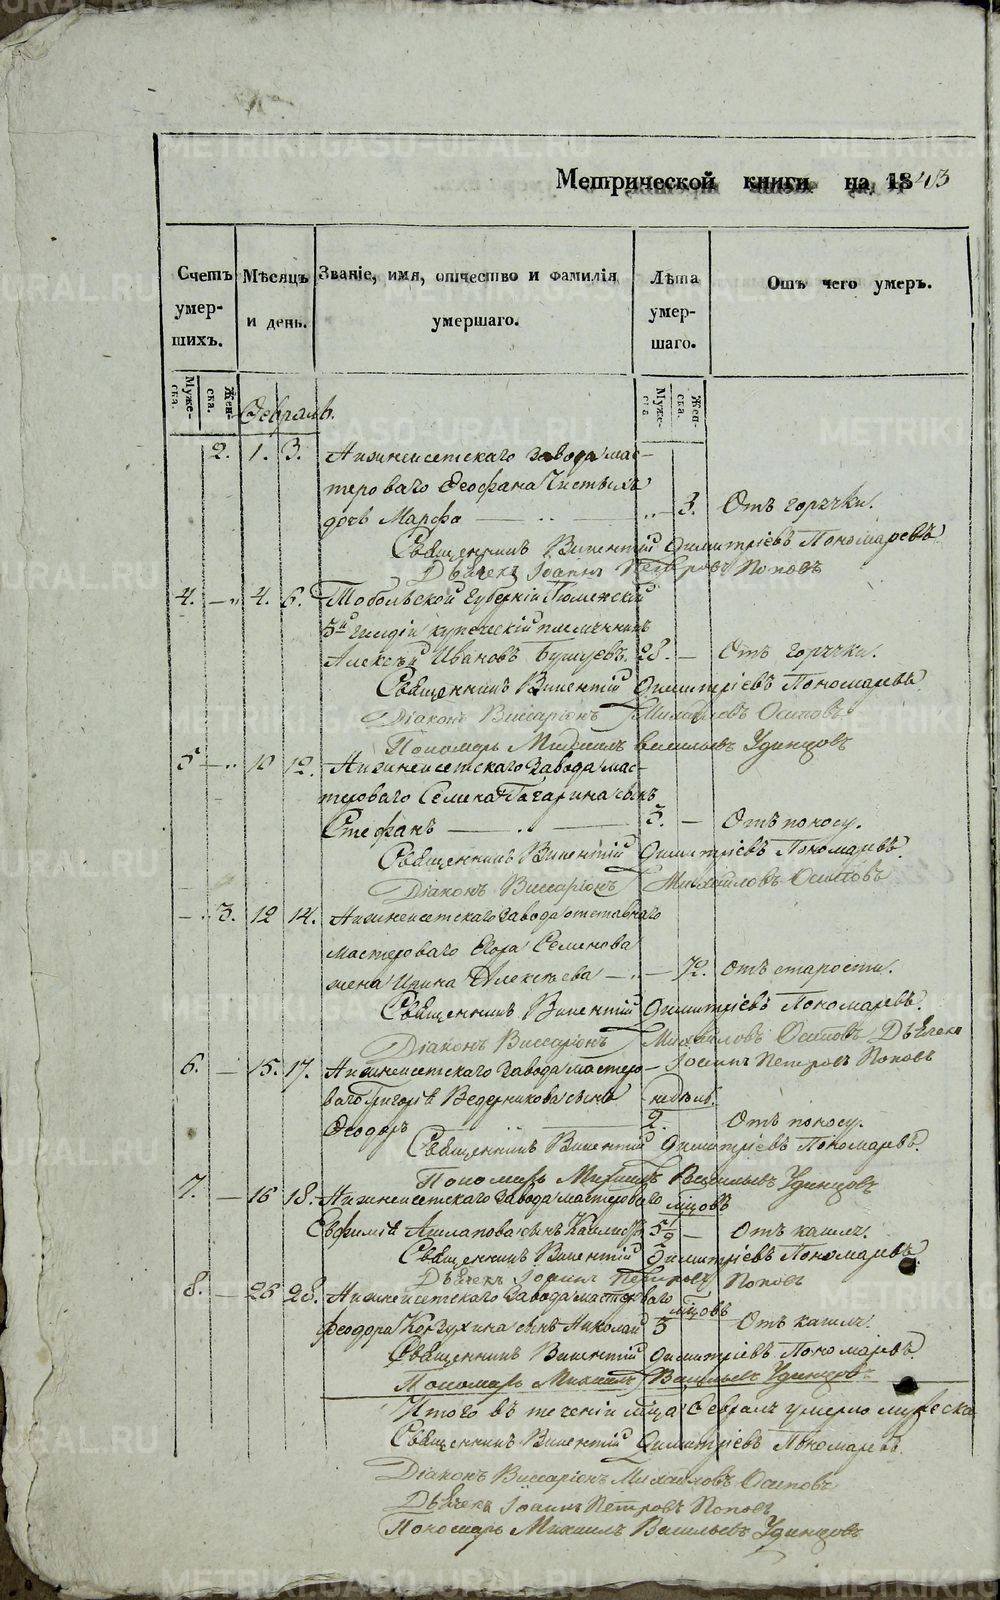 Метрической книги на 1843
Счетъ умер-шихъ.
Мѣсяцъ и день.
Званіе, имя, отчество и фамилія умершаго.
Лѣта умер-шаго.
Отъ чего умеръ.
Муже-ска.
Жен-ска.
Муже-ска
Жен-ска.
Февраль.
2. 1. 3. Нижнеисетскаго завода мас-
тероваго Феофана Чистыхъ
дочь Марфа 3. Отъ горячки.
Священникъ Викентій Димитріевъ Пономаревъ
Дьячекъ Іоаннъ Петровъ Поповъ
4. 4. 6. Тобольской губерніи Тюменскій
3й гильдіи купеческій племянникъ
Алексѣй Ивановъ 28. Отъ горячки.
Священникъ Викентій Димитріевъ Пономаревъ
Діаконъ Виссаріонъ Михайловъ Осиповъ
Пономарь Михаилъ Васильевъ Удинцовъ
5 10 12. Нижнеисетскаго завода мас-
тероваго Семена Гагарина сынъ
Стефанъ 3. Отъ поносу.
Священникъ Викентій Димитріевъ Пономаревъ.
Діаконъ Виссаріонъ Михайловъ Осиповъ
3. 12 14. Нижнеисетскаго завода отставнаго
мастероваго Егора Семенова
жена Ирина Алексѣева 72. Отъ старости.
Священникъ Викентій Димитріевъ Пономаревъ.
Діаконъ Виссаріонъ Михайловъ Осиповъ Дьячекъ
Іоаннъ Петровъ Поповъ
6. 15. 17. Нижнеисетскаго завода мастеро-
ваго Григорія Ведерникова сынъ недѣль
Феодоръ 2. Отъ поносу.
Священникъ Викентій Димитріевъ Пономаревъ.
Пономарь Михаилъ Васильевъ Удинцовъ
7. 16 18. Нижнеисетскаго завода мастероваго мцовъ
Евфимія сынъ 5½ Отъ кашля.
Священникъ Викентій Димитріевъ Пономаревъ
Дьячекъ Іоаннъ Петровъ Поповъ
8. 26 28. Нижнеисетскаго завода мастероваго мцовъ
Феодора сынъ Николай 3 Отъ кашля.
Священникъ Викентій Димитріевъ Пономаревъ.
Пономарь Михаилъ Васильевъ Удинцовъ
Итого въ теченіи мца Февраля умерло мужеска
Священникъ Викентій Димитріевъ Пономаревъ.
Діаконъ Виссаріонъ Михайловъ Осиповъ
Дьячекъ Іоаннъ Петровъ Поповъ
Пономарь Михаилъ Васильевъ Удинцовъ
METRIKI.GASO-URAL.RU